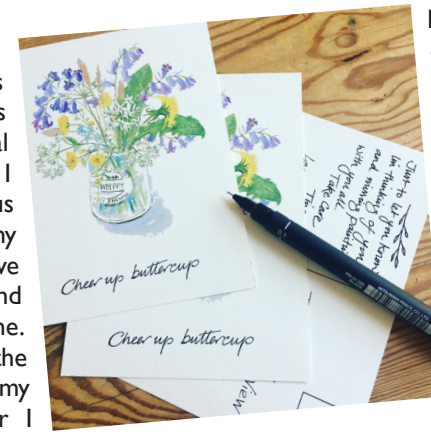 s
s
al
I
us
my
ve
nd
ne.
the
my
r I
WOLFFY
Cheer up buttercup
Cheer up buttercup
Just to let you know
im thinking of you
and missing painting
with you all
Take care
View